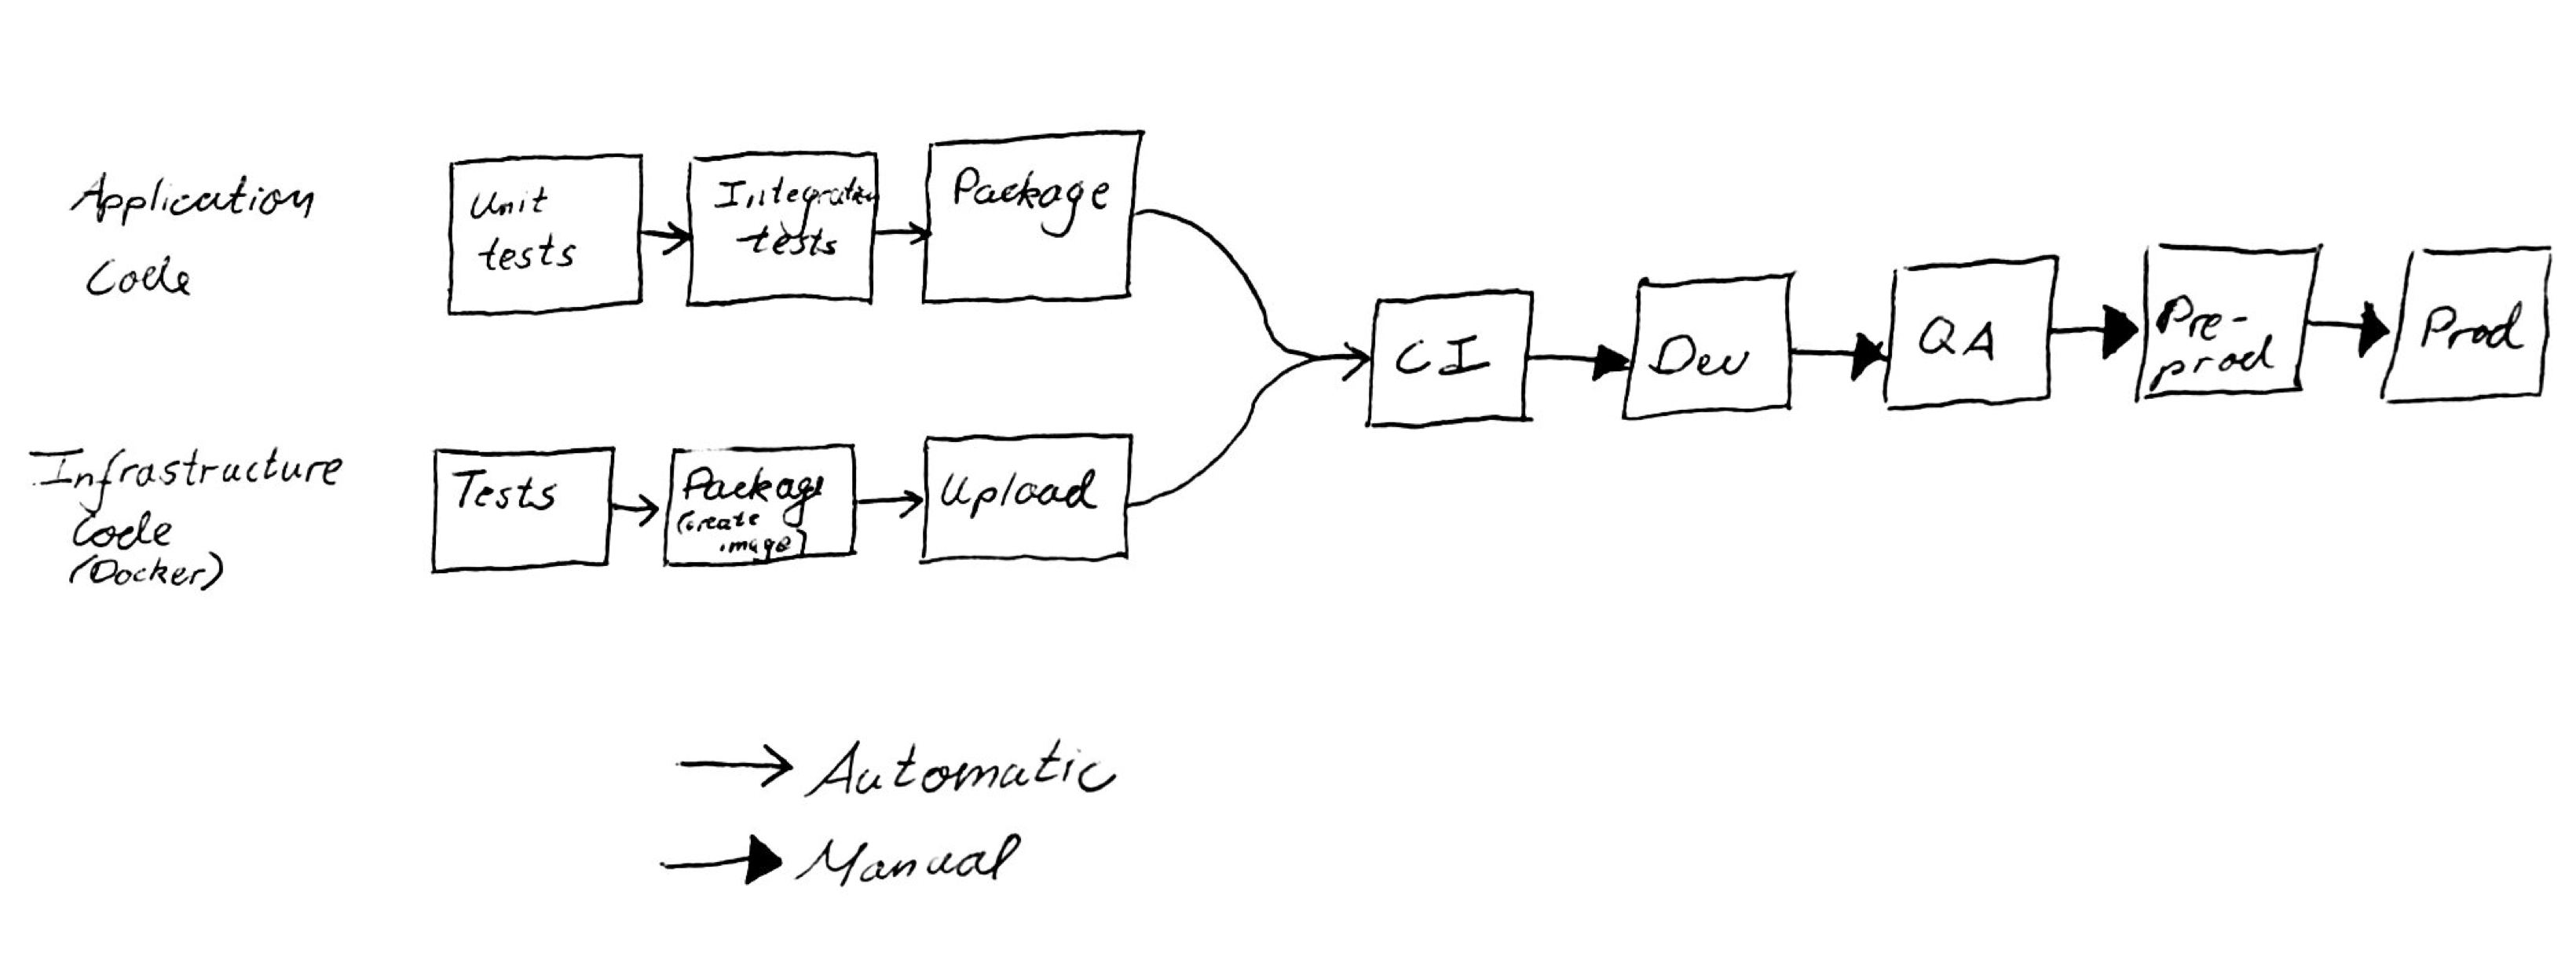 Application
Code
Unit
tests
Integration
tests
Package
Infrastructure
Code
(Docker)
Tests
Package
(create
image)
Upload
CI
Dev
QA
Pre-
prod
Prod
Automatic
Manual